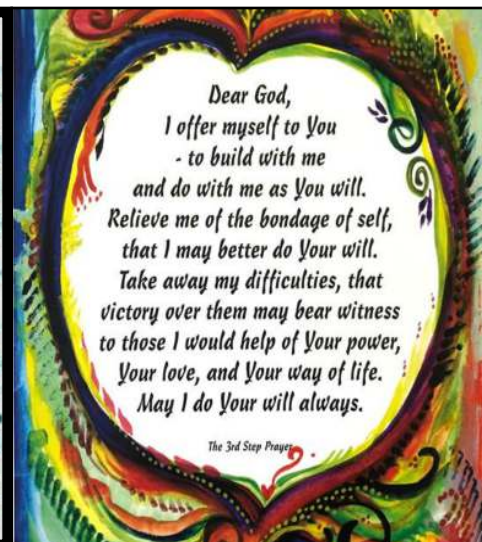 Dear God,
I offer myself to You
- to build with me
and do with me as You will.
Relieve me of the bondage of self,
that I may better do Your will.
Take away my difficulties, that
victory over them may bear witness
to those I would help of Your power,
Your love, and Your way of life.
May I do Your will always.
The 3rd Step Prayer